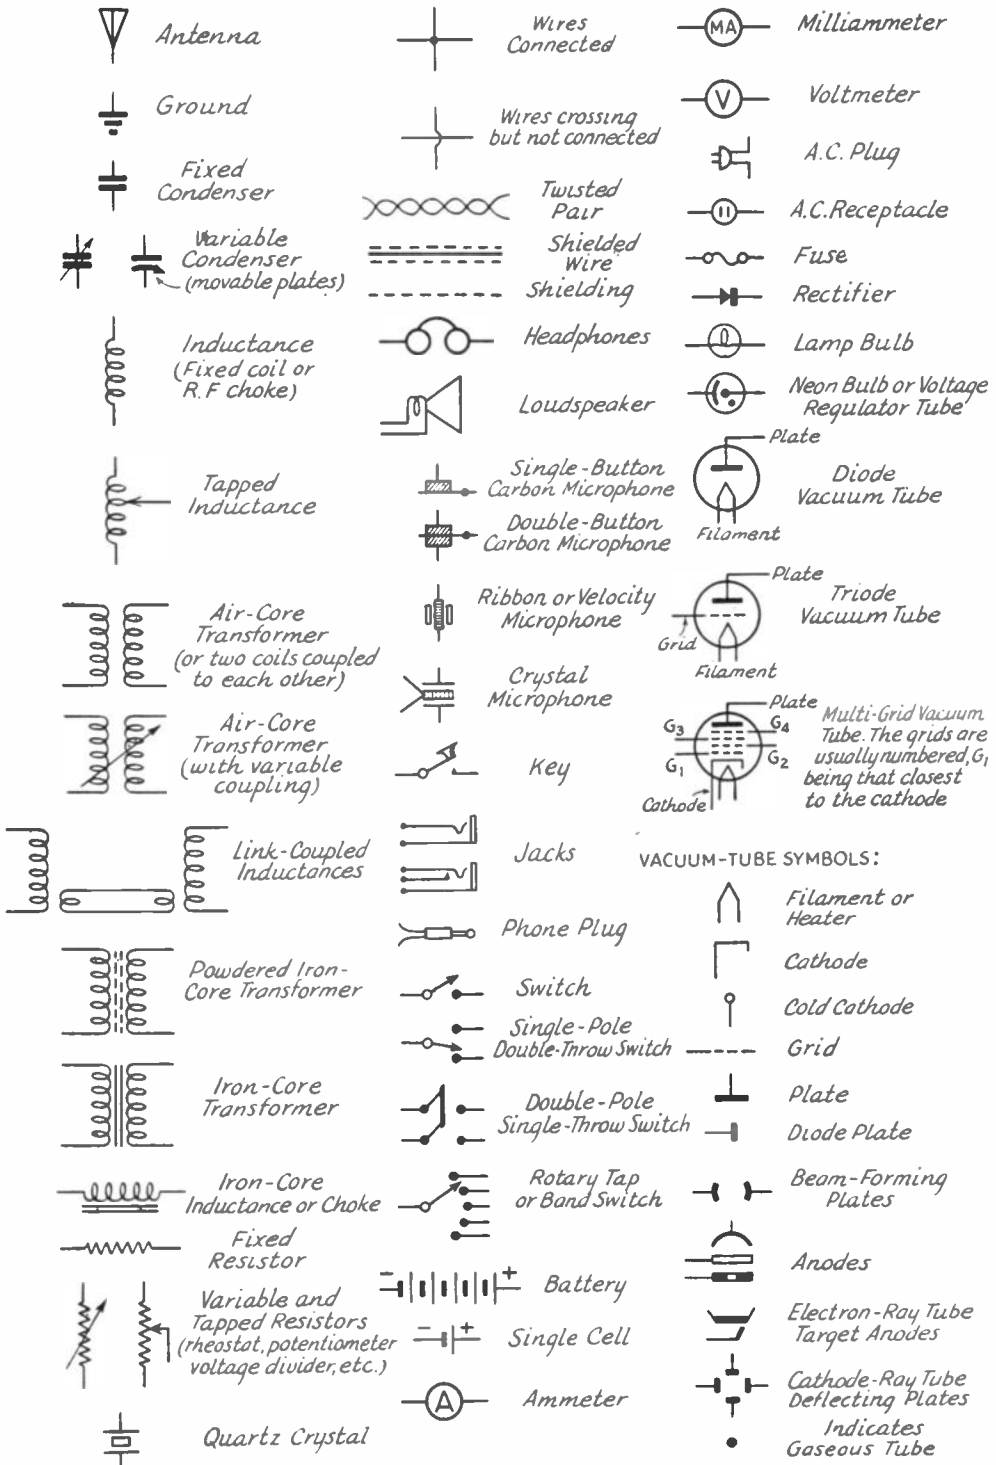 Antenna
Ground
Fixed
Condenser
Variable
Condenser
(movable plates)
Inductance
(Fixed coil or
R.F choke)
Tapped
Inductance
Air-Core
Transformer
(or two coils coupled
to each other)
Air-Core
Transformer
(with variable
coupling)
Link-Coupled
Inductances
Powdered Iron-
Core Transformer
Iron-Core
Transformer
Iron-Core
Inductance or Choke
Fixed
Resistor
Variable and
Tapped Resistors
(rheostat, potentiometer
voltage divider, etc.)
Quartz Crystal
Wires
Connected
Wires crossing
but not connected
Twisted
Pair
Shielded
Wire
Shielding
Headphones
Loudspeaker
Single-Button
Carbon Microphone
Double-Button
Carbon Microphone
Ribbon or Velocity
Microphone
Crystal
Microphone
Key
Jacks
Phone Plug
Switch
Single-Pole
Double-Throw Switch
Double-Pole
Single-Throw Switch
Rotary Tap
or Band Switch
- +
Battery
- +
Single Cell
A
Ammeter
MA
Milliammeter
V
Voltmeter
A.C. Plug
A.C. Receptacle
Fuse
Rectifier
Lamp Bulb
Neon Bulb or Voltage
Regulator Tube
Plate
Diode
Vacuum Tube
Filament
Plate
Triode
Vacuum Tube
Grid
Filament
Plate
G3
G4
G1
G2
Cathode
Multi-Grid Vacuum
Tube. The grids are
usually numbered, G1
being that closest
to the cathode
VACUUM-TUBE SYMBOLS:
Filament or
Heater
Cathode
Cold Cathode
Grid
Plate
Diode Plate
Beam-Forming
Plates
Anodes
Electron-Ray Tube
Target Anodes
Cathode-Ray Tube
Deflecting Plates
Indicates
Gaseous Tube